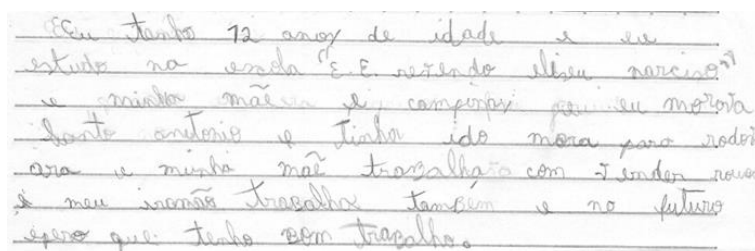 Eu tenho 12 anos de idade e eu
estudo na escola "E.E. reverendo eliseu narciso"
e minha mãe e campinas eu morava
Santo anitonio e tinha ido mora para rodov
ara e minha mãe trabalha com vender roupa
e meu irmão trabalha também e no futuro
épero que tenho bom trabalho.